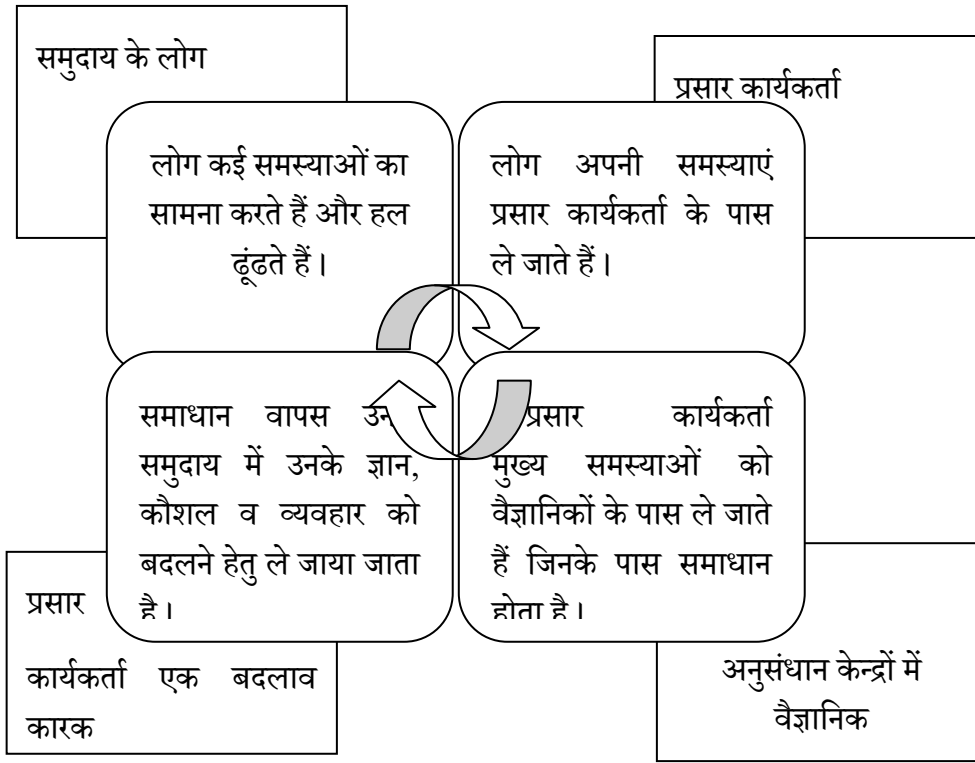 समुदाय के लोग
प्रसार कार्यकर्ता
लोग कई समस्याओं का
सामना करते हैं और हल
ढूंढते हैं।
लोग अपनी समस्याएं
प्रसार कार्यकर्ता के पास
ले जाते हैं।
समाधान वापस
समुदाय में उनके ज्ञान,
कौशल व व्यवहार को
बदलने हेतु ले जाया जाता
है।
प्रसार कार्यकर्ता
मुख्य समस्याओं को
वैज्ञानिकों के पास ले जाते
हैं जिनके पास समाधान
होता है।
प्रसार
कार्यकर्ता एक बदलाव
कारक
अनुसंधान केन्द्रों में
वैज्ञानिक